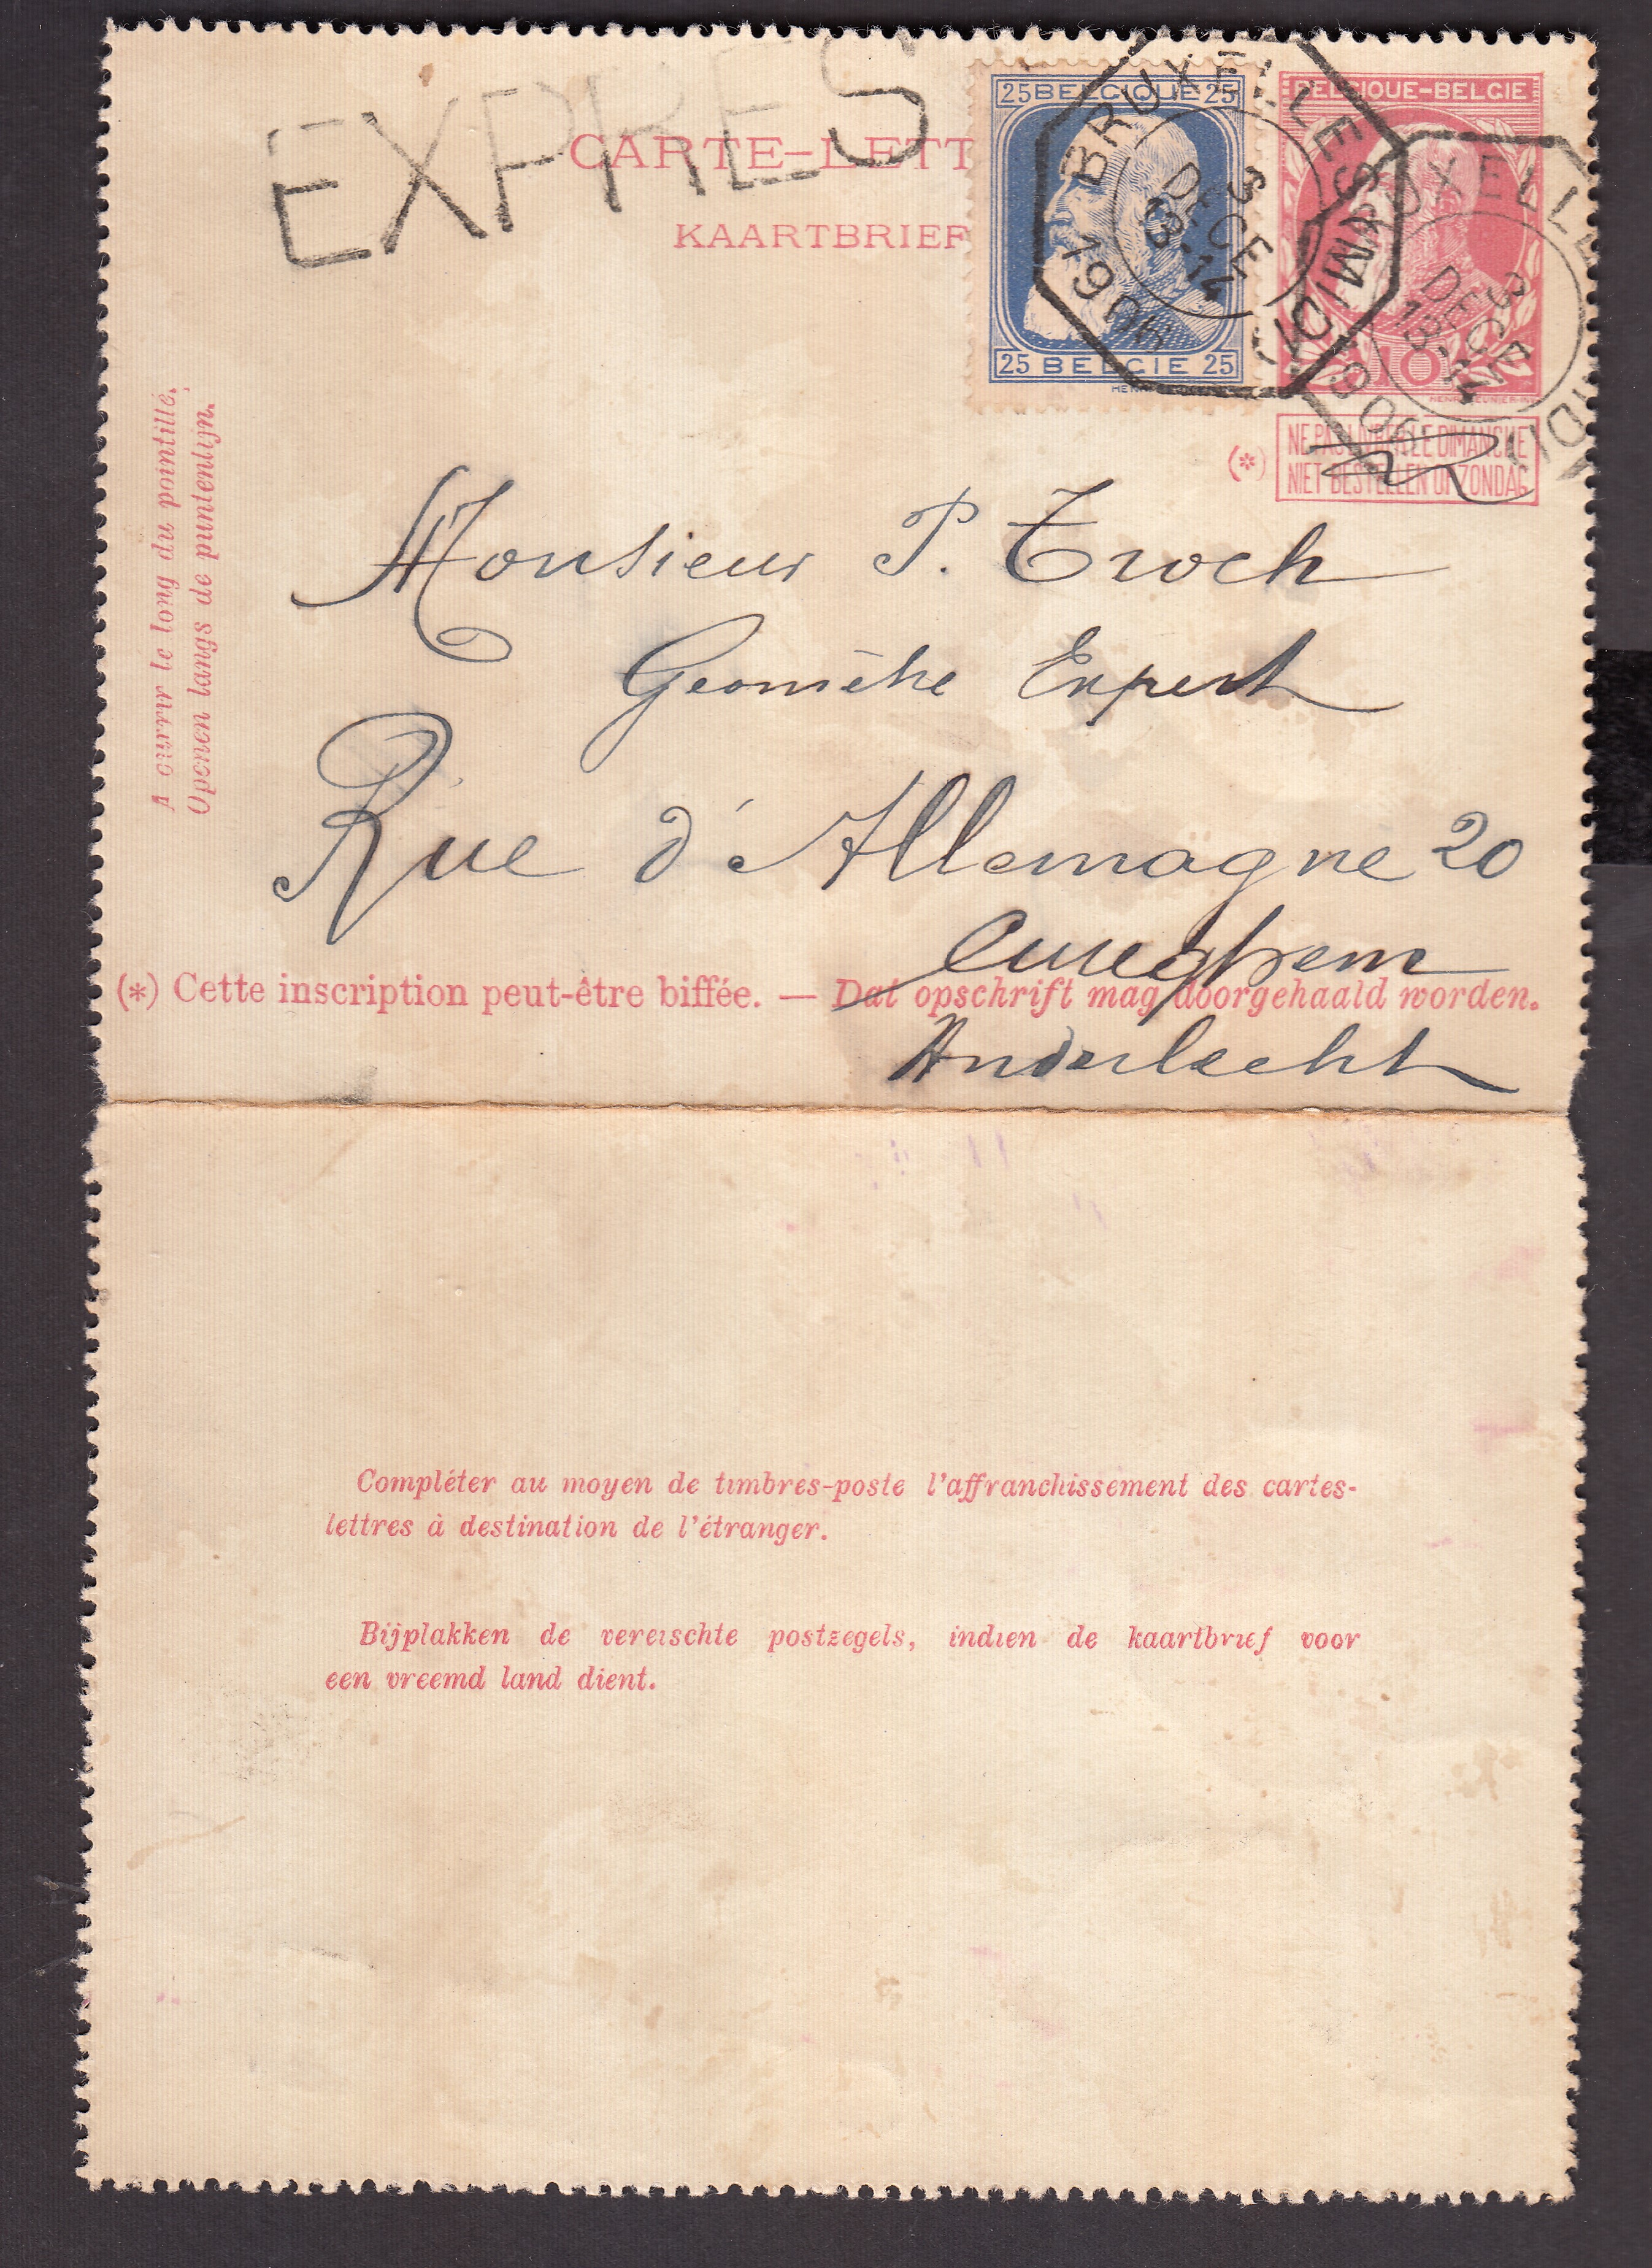 EXPRES
CARTE-LETT
KAARTBRIEF
25 BELGIQUE 25
25 BELGIE 25
BELGIQUE-BELGIE
10
BRUXELLES MIDI
3 DECE
13-14
BRUXELLES MIDI
3 DECE
13-14
(*) NE PAS LIVRER LE DIMANCHE
NIET BESTELLEN OP ZONDAG
A ouvrir le long du pointillé.
Openen langs de puntenlijn.
Monsieur P. Troch
Geomètre Expert
Rue d'Allemagne 20
Cureghem
(*) Cette inscription peut-être biffée. — Dat opschrift mag doorgehaald worden.
Anderlecht
Compléter au moyen de timbres-poste l'affranchissement des cartes-
lettres à destination de l'étranger.
Bijplakken de vereischte postzegels, indien de kaartbrief voor
een vreemd land dient.